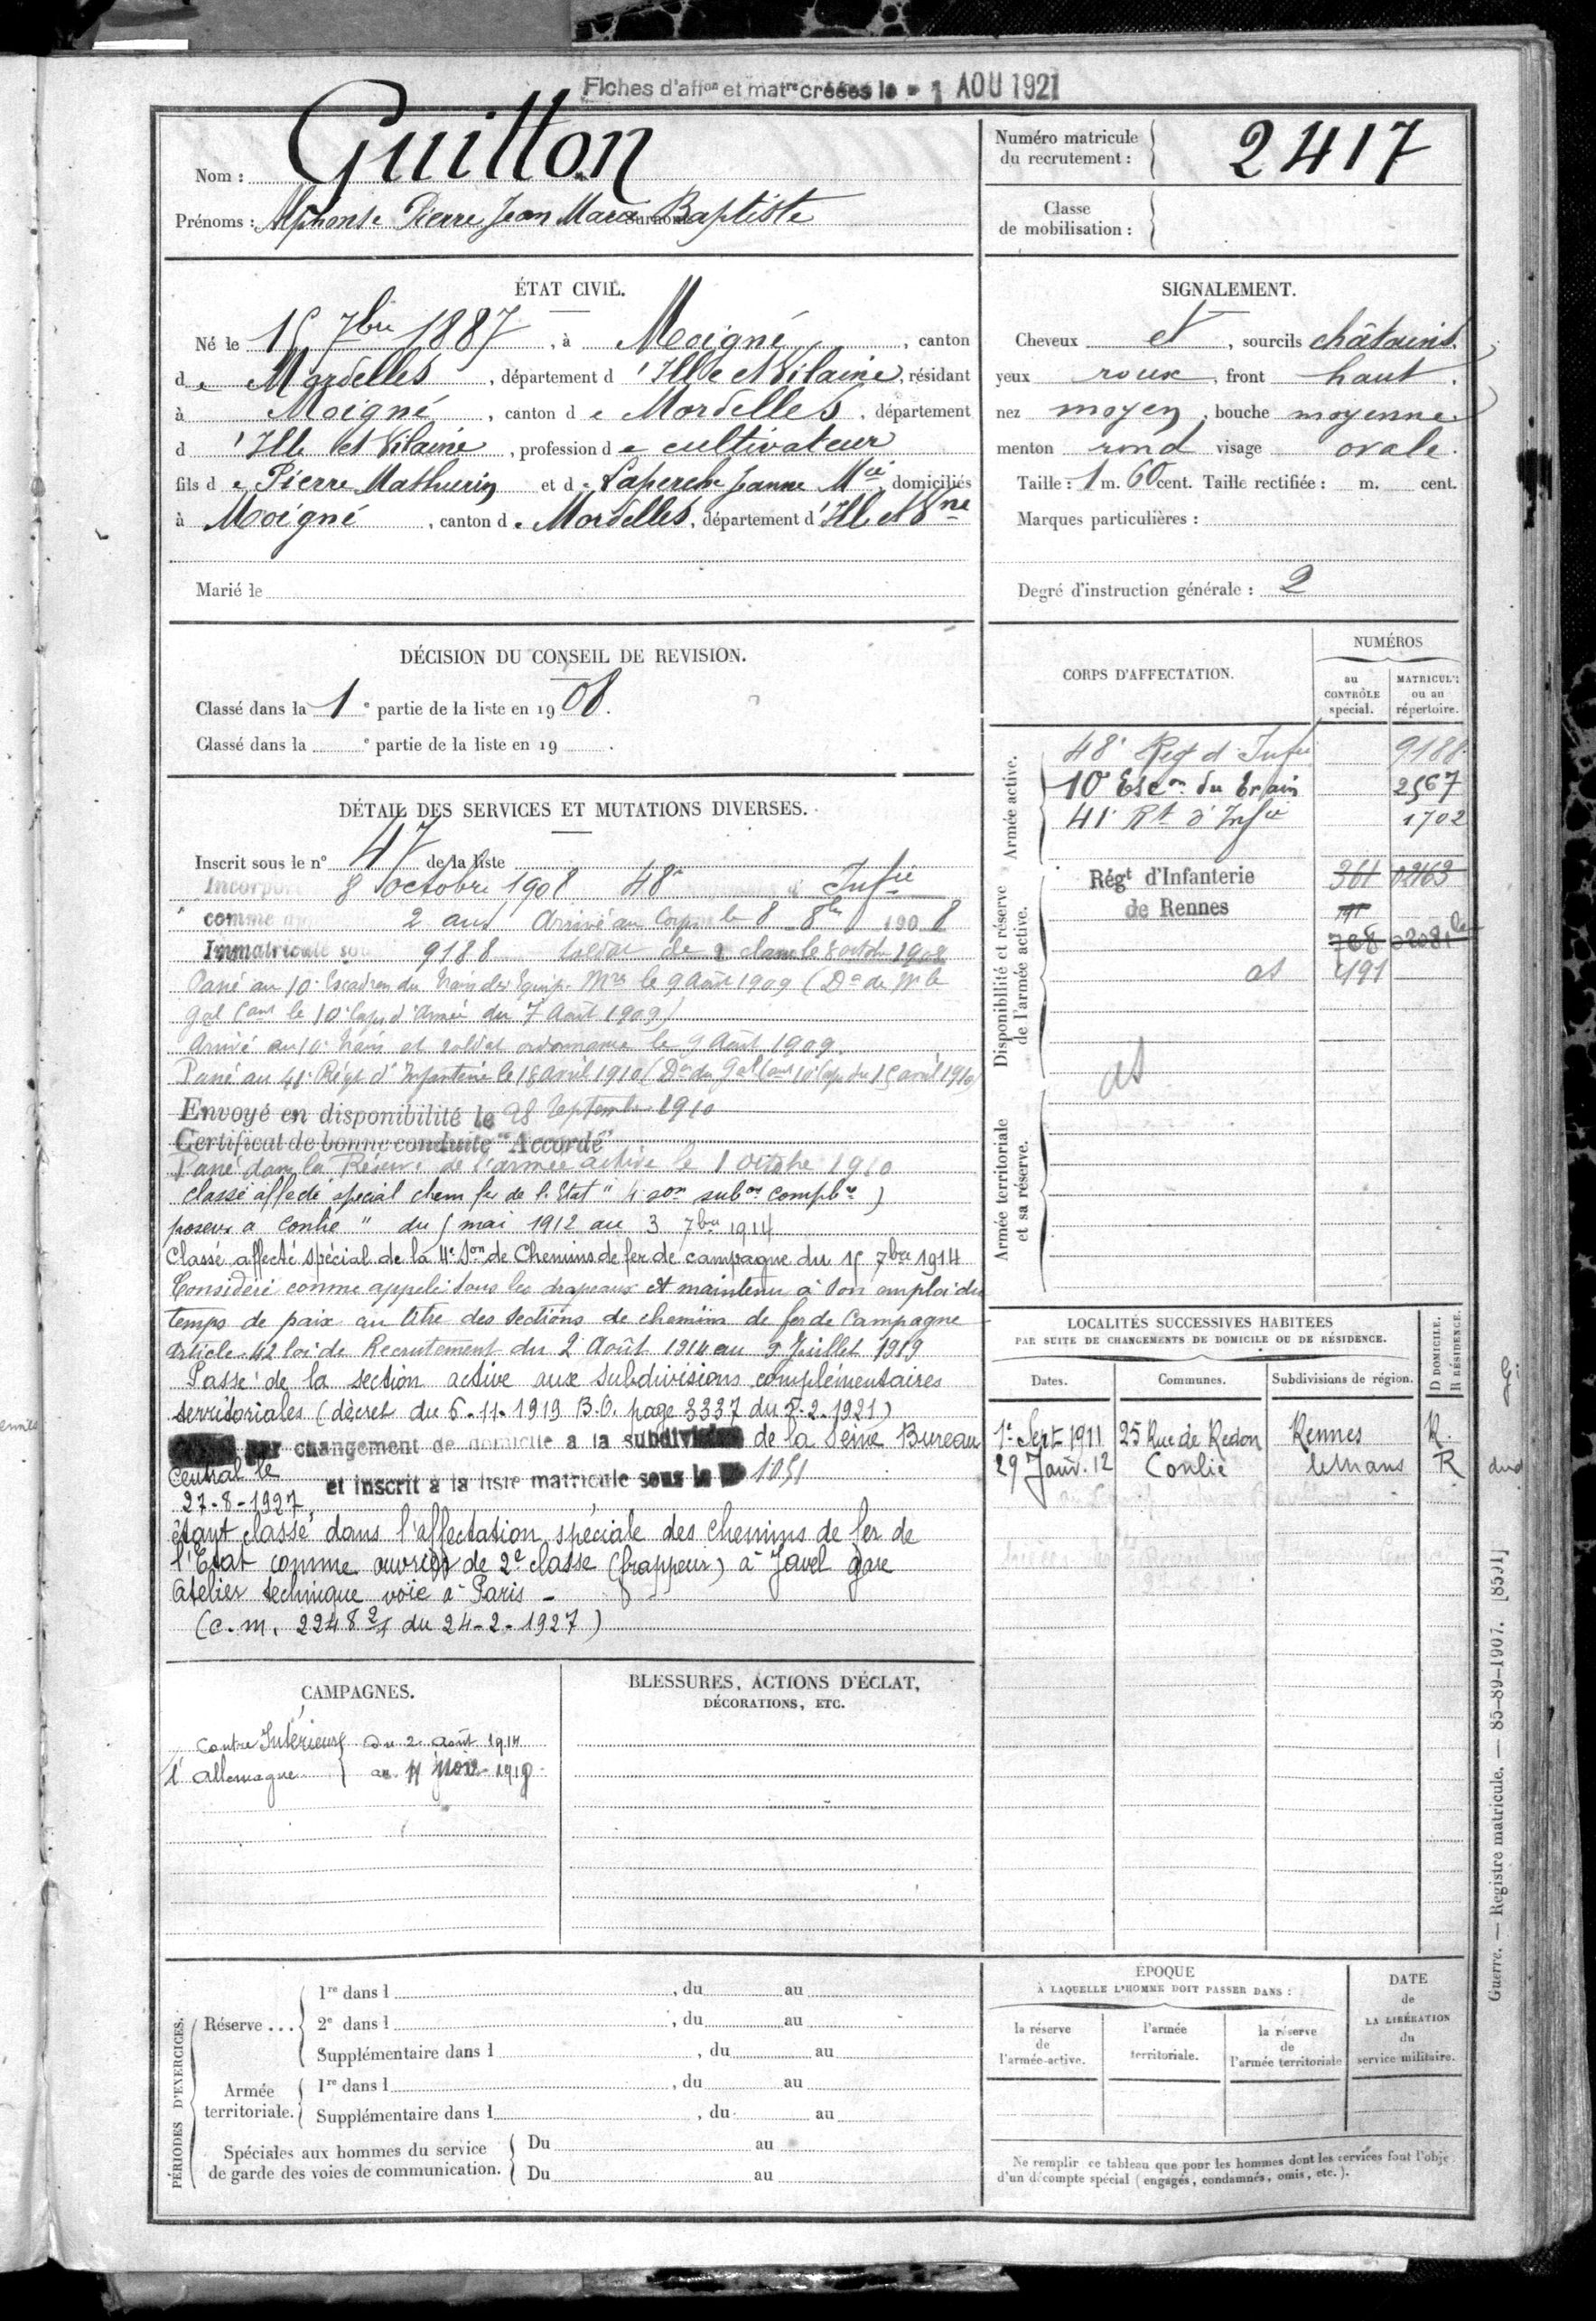 Fiches d'affon et matre créées le - 1 AOU 1921
Nom : Guitton
Prénoms : Alphonse Pierre Jean Marie Baptiste
Numéro matricule
du recrutement :
2417
Classe
de mobilisation :
ÉTAT CIVIL.
Né le 15 7bre 1887, à Moigné, canton
de Mordelles, département d'Ille et Vilaine, résidant
à Moigné, canton de Mordelles, département
d'Ille et Vilaine, profession de cultivateur
fils de Pierre Mathurin et de Laperche Jeanne Mie, domiciliés
à Moigné, canton de Mordelles, département d'Ill et Vne
Marié le
SIGNALEMENT.
Cheveux et, sourcils châtains.
yeux roux, front haut.
nez moyen, bouche moyenne
menton rond visage ovale.
Taille : 1 m. 60 cent. Taille rectifiée : m. cent.
Marques particulières :
Degré d'instruction générale : 2
DÉCISION DU CONSEIL DE REVISION.
Classé dans la 1e partie de la liste en 1908.
Classé dans la e partie de la liste en 19 .
DÉTAIL DES SERVICES ET MUTATIONS DIVERSES.
Inscrit sous le n° 47 de la liste
Incorpo 8 octobre 1908 48e d'Infie
comme 2 ans Arrivé au Corps le 8 8bre 1908
Immatriculé sou 9188 soldat de 2 classe le 8 octobre 1908
Passé au 10e Escadron du Train des Equip. Mres le 9 Août 1909 (Don de Mr le
Gal Cant le 10e Corps d'Armée du 7 Août 1909)
Arrivé au 10e train et soldat ordonnance le 9 Août 1909.
Passé au 41e Régt d'Infanterie le 18 avril 1910 (Don du Gal Cant 10e Corps du 15 avril 1910)
Envoyé en disponibilité le 28 Septembre 1910
Certificat de bonne conduite "Accordé"
Passé dans la Réserve de l'armée active le 1 octobre 1910
classé affecté spécial chem fer de l'Etat " 4 son subon complre )
poseur a Conlie " du 5 mai 1912 au 3 7bre 1914
Classé affecté spécial de la 4e Son de Chemins de fer de campagne du 15 7bre 1914
Considéré comme appelé sous les drapeaux et maintenu à son emploi du
temps de paix au titre des sections de chemins de fer de Campagne
article 42 loi de Recrutement du 2 Août 1914 au 9 Juillet 1919
Passé de la section active aux subdivisions complémentaires
territoriales (décret du 6.11.1919 B.O. page 3337 du 8.2.1921)
par changement de domicile a la subdivision de la Seine Bureau
Central le et inscrit à la liste matricule sous le 1051
27-8-1927,
étant classé dans l'affectation spéciale des chemins de fer de
l'Etat comme ouvrier de 2e classe (frappeur) à Javel gare
atelier technique voie à Paris -
(C.M. 2248 2/1 du 24-2-1927)
CORPS D'AFFECTATION.
NUMÉROS
au CONTRÔLE spécial.
MATRICULE ou au répertoire.
Armée active.
48e Regt d'Infie 9188
10e Escon du Train 2567
41e Rt d'Infie 1702
Disponibilité et réserve de l'armée active.
Régt d'Infanterie 361 02163
de Rennes
708 02081
as 491
as
Armée territoriale et sa réserve.
LOCALITÉS SUCCESSIVES HABITÉES
PAR SUITE DE CHANGEMENTS DE DOMICILE OU DE RÉSIDENCE.
Dates. Communes. Subdivisions de région. D DOMICILE. R RÉSIDENCE.
1er Sept 1911 25 Rue de Redon Rennes R.
29 Janv. 12 Conlie le Mans R
CAMPAGNES.
Contre Intérieur du 2 Août 1914
l'Allemagne
BLESSURES, ACTIONS D'ÉCLAT,
DÉCORATIONS, ETC.
PÉRIODES D'EXERCICES.
Réserve ...
1re dans l , du au
2e dans l , du au
Supplémentaire dans l , du au
Armée territoriale.
1re dans l , du au
Supplémentaire dans l , du au
Spéciales aux hommes du service
de garde des voies de communication.
Du au
Du au
ÉPOQUE
À LAQUELLE L'HOMME DOIT PASSER DANS :
la réserve de l'armée active.
l'armée territoriale.
la réserve de l'armée territoriale
DATE de LA LIBÉRATION du service militaire.
Ne remplir ce tableau que pour les hommes dont les services font l'obje
d'un décompte spécial (engagés, condamnés, omis, etc.).
Guerre. — Registre matricule. — 85-89-1907. [8591]